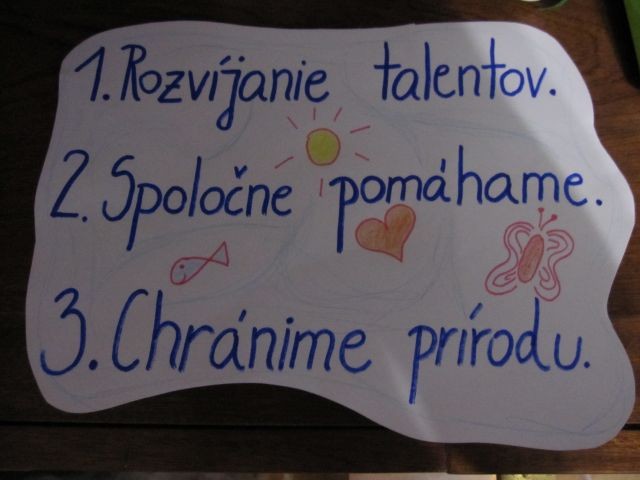 1. Rozvíjanie talentov.
2. Spoločne pomáhame.
3. Chránime prírodu.